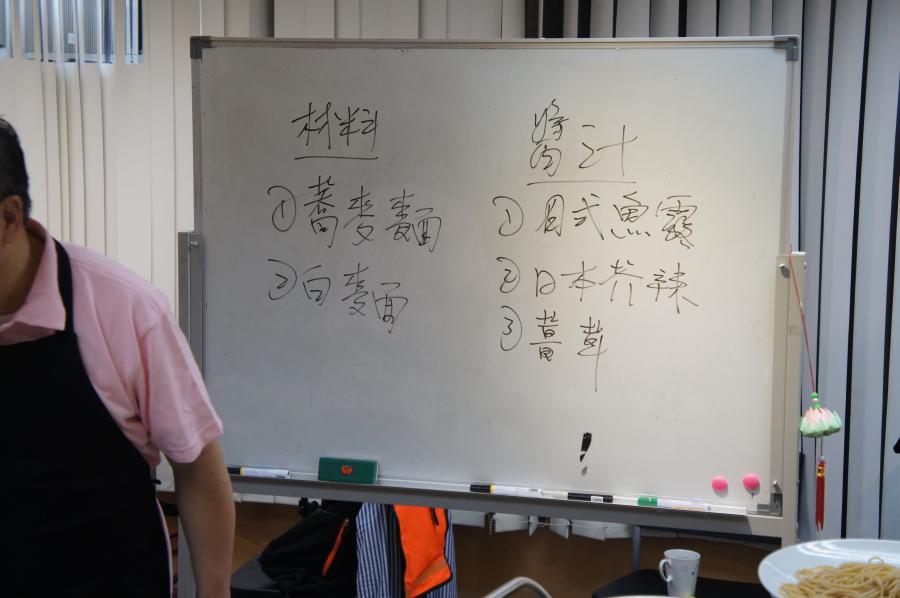 材料
①蕎麥麵
②白麥面
醬汁
①日式魚露
②日本芥辣
③